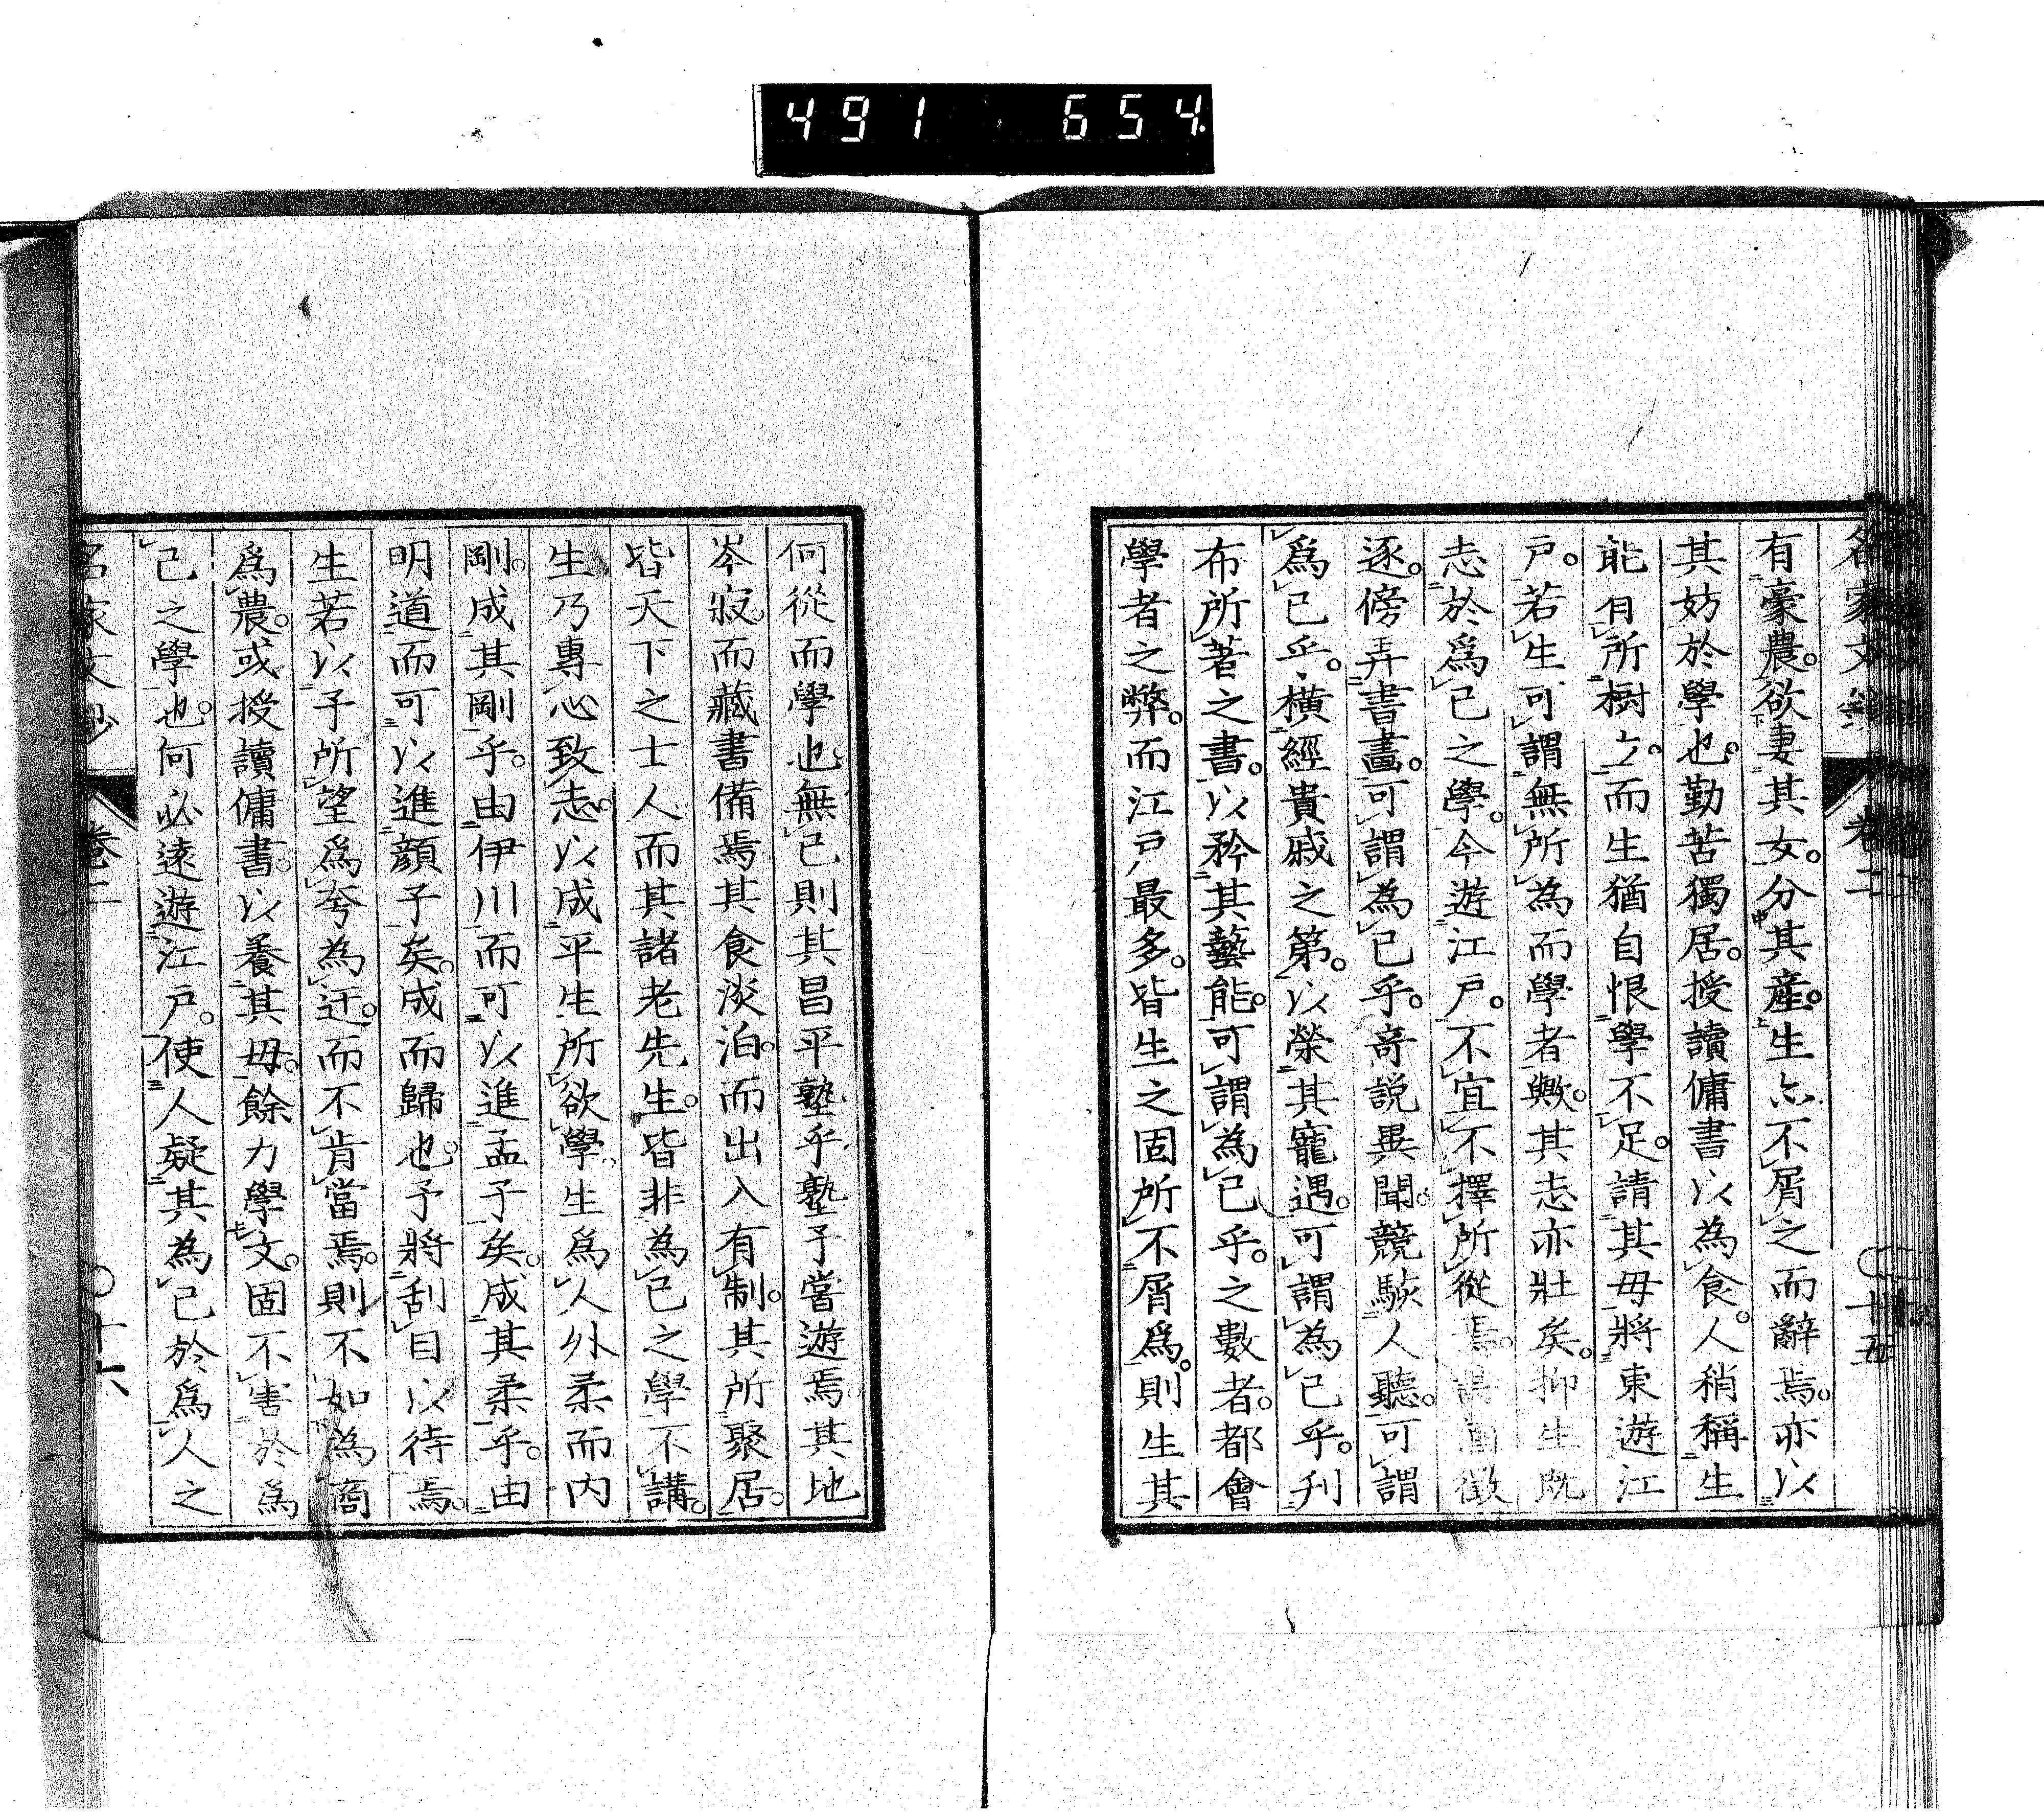 491 654
名家文鈔 卷二 十五
有豪農。欲妻其女。分其產。生亦不屑之而辭焉。亦以
其妨於學也。勤苦獨居。授讀傭書以為食。人稍稱生
能有所樹立。而生猶自恨學不足。請其母將東遊江
戶。若生可謂無所為而學者歟。其志亦壯矣。抑生既
志於爲己之學。今遊江戶。不宜不擇所從焉。
逐。傍弄書畫。可謂為己乎。奇説異聞。競駭人聽。可謂
爲己乎。橫經貴戚之第。以榮其寵遇。可謂為己乎。刋
布所著之書。以矜其藝能。可謂為己乎。之數者。都會
學者之弊。而江戶最多。皆生之固所不屑爲。則生其
何從而學也。無已則其昌平塾乎。塾予嘗遊焉。其地
岑寂。而藏書備焉。其食淡泊。而出入有制。其所聚居。
皆天下之士人而其諸老先生。皆非為己之學不講。
生乃專心致志。以成平生所欲學。生爲人外柔而内
剛。成其剛乎。由伊川而可以進孟子矣。成其柔乎。由
明道而可以進顔子矣。成而歸也。予將刮目以待焉。
生若以予所望爲夸為迂。而不肯當焉。則不如為商
爲農。或授讀傭書。以養其母。餘力學文。固不害於爲
己之學也。何必遠遊江戶。使人疑其為己於爲人之
名家文鈔 卷二 十六